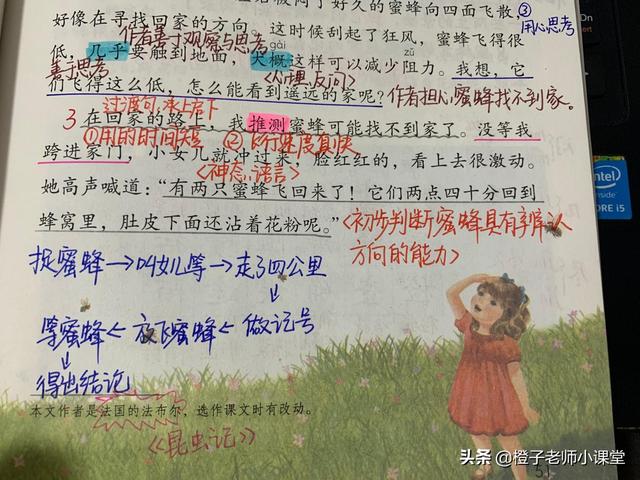 好像在寻找回家的方向。这时候刮起了狂风，蜜蜂飞得很
③用心思考
作者善于观察与思考
gài
zǔ
低，几乎要触到地面，大概这样可以减少阻力。我想，它
善于思考
<心理、反问>
们飞得这么低，怎么能看到遥远的家呢？
作者担心蜜蜂找不到家。
过渡句，承上启下
3 在回家的路上，我推测蜜蜂可能找不到家了。没等我
①用的时间短 ②飞行速度真快
跨进家门，小女儿就冲过来，脸红红的，看上去很激动。
<神态、语言>
她高声喊道：“有两只蜜蜂飞回来了！它们两点四十分回到
蜂窝里，肚皮下面还沾着花粉呢。”
<初步判断蜜蜂具有辨认
方向的能力>
捉蜜蜂→叫女儿等→走了四公里
等蜜蜂←放飞蜜蜂←做记号
得出结论
本文作者是法国的法布尔，选作课文时有改动。
《昆虫记》
intel
CORE i5
头条 @橙子老师小课堂